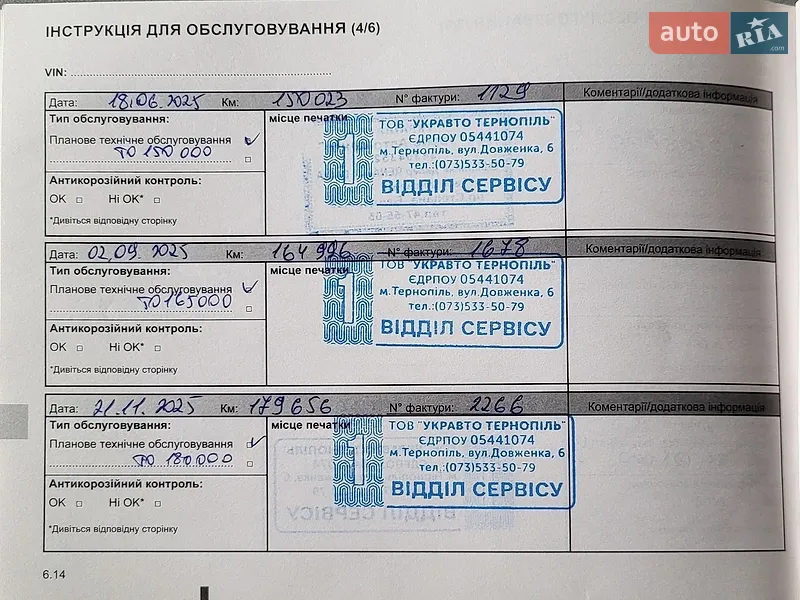 ІНСТРУКЦІЯ ДЛЯ ОБСЛУГОВУВАННЯ (4/6)
auto RIA .com
VIN:
Дата: 18.06.2025 Км: 150023 N° фактури: 1129 Коментарії/додаткова інформація
Тип обслуговування: місце печатки
Планове технічне обслуговування
ТО 150 000
Антикорозійний контроль:
OK Ні OK*
*Дивіться відповідну сторінку
1 ТОВ "УКРАВТО ТЕРНОПІЛЬ"
ЄДРПОУ 05441074
м.Тернопіль, вул.Довженка, 6
тел.:(073)533-50-79
ВІДДІЛ СЕРВІСУ
Дата: 02.09.2025 Км: 164 996 N° фактури: 1678 Коментарії/додаткова інформація
Тип обслуговування: місце печатки
Планове технічне обслуговування
ТО 165000
Антикорозійний контроль:
OK Ні OK*
*Дивіться відповідну сторінку
1 ТОВ "УКРАВТО ТЕРНОПІЛЬ"
ЄДРПОУ 05441074
м.Тернопіль, вул.Довженка, 6
тел.:(073)533-50-79
ВІДДІЛ СЕРВІСУ
Дата: 21.11.2025 Км: 179656 N° фактури: 2266 Коментарії/додаткова інформація
Тип обслуговування: місце печатки
Планове технічне обслуговування
ТО 180.000
Антикорозійний контроль:
OK Ні OK*
*Дивіться відповідну сторінку
1 ТОВ "УКРАВТО ТЕРНОПІЛЬ"
ЄДРПОУ 05441074
м.Тернопіль, вул.Довженка, 6
тел.:(073)533-50-79
ВІДДІЛ СЕРВІСУ
6.14